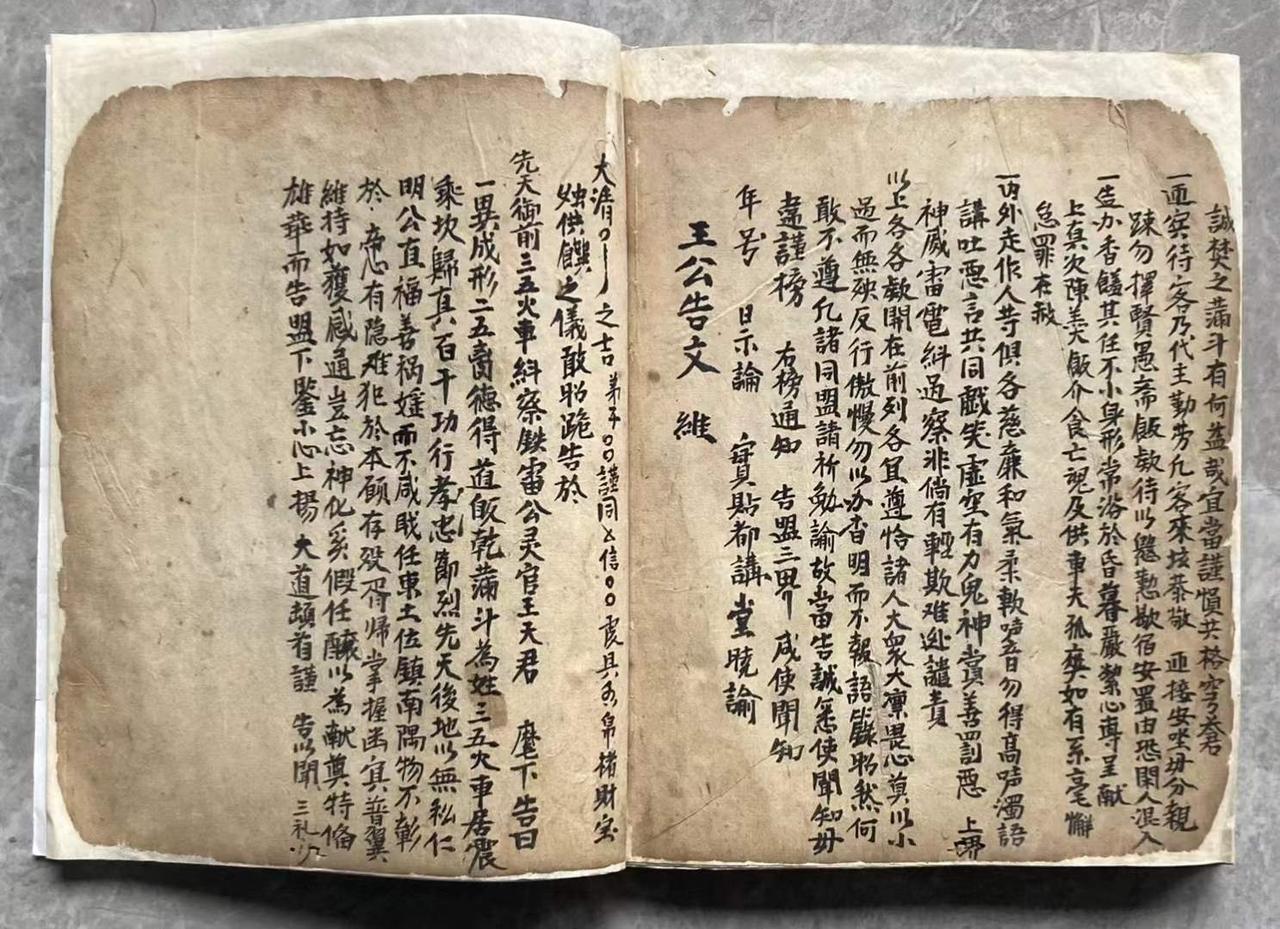 誠焚之滿斗有何益哉宜當謹慎共格穹蒼
一迎賓待客乃代主勤劳凢客來垓恭敬 迎接安坐毋分親
踈勿擇賢愚斋飯欵待以慇懃歇宿安置由恐閑人混入
一造办香饈其任不小身形常浴於昏暮嚴絜心專呈献
上真次陳羙大飯介食亡魂及供車夫孤爽如有系毫懈
怠罪在赦
一內外走作人等俱各慈蓭和氣柔軟声音勿得高声濁語
講吐惡言共同戯笑虛空有力鬼神賞善罰惡 上界
神威雷電糾過察非倘有輕欺难迯譴責
以上各各欵開在前列各宜遵恰諸人大衆大凛畏心莫以小
過而無殃反行傲慢勿以办香明而不報語錄昭然何
敢不遵凢諸同盟諸祈勉論故當告誡筂使聞知毋
違謹榜 右榜通知 告盟三界 咸使聞知
年号 日示諭 實貼都講堂曉諭
王公告文 維
大清〇〡丿之吉 弟子〇〇謹同乂信〇〇虔具香帛楮財宝
燭供饌之儀敢昭跪告於
先天御前三五火車糾察鉄雷公灵官王天君 麾下告曰
一異成形二五啬德得道皈乾滿斗為姓三五火車居震
乘坎歸真百千功行孝忠節烈先天後地以無私仁
明公直福善禍婬而不咸戝任東土位鎮南隅物不彰
於帝心有隐难犯於本願存殁胥帰掌握幽冥普翼
維持如獲感通豈忘神化奚假任醸以為献奠特脩
雄華而告盟下鑒小心上揚大道頭首謹 告以聞 三礼